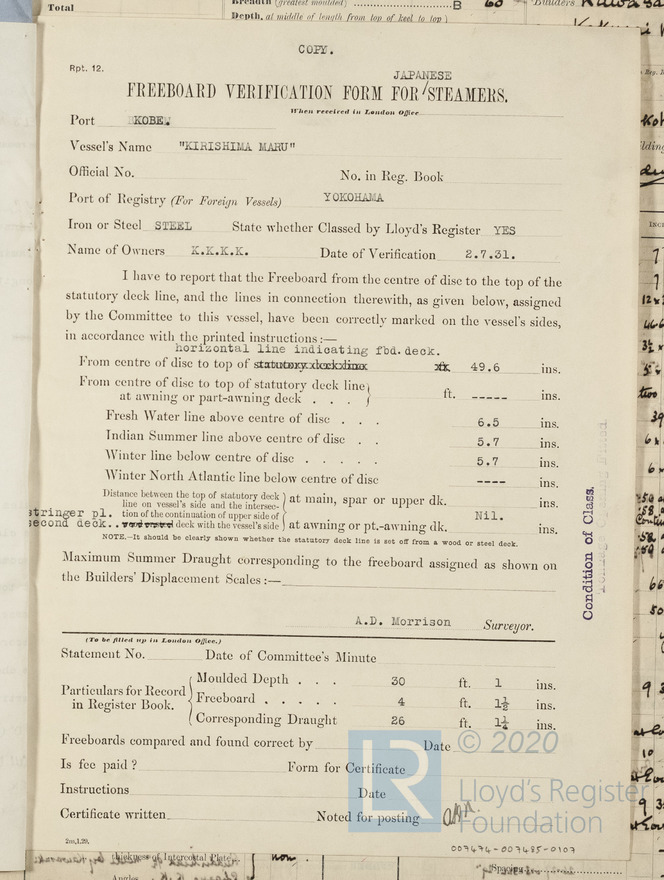 Total
Breadth (greatest moulded)
B 60
Builders Kawasa
Depth, at middle of length from top of keel to top
COPY.
Rpt. 12.
JAPANESE
FREEBOARD VERIFICATION FORM FOR / STEAMERS.
When received in London Office
Port KOBE.
Vessel's Name "KIRISHIMA MARU"
Official No. No. in Reg. Book
Port of Registry (For Foreign Vessels) YOKOHAMA
Iron or Steel STEEL State whether Classed by Lloyd's Register YES
Name of Owners K.K.K.K. Date of Verification 2.7.31.
I have to report that the Freeboard from the centre of disc to the top of the
statutory deck line, and the lines in connection therewith, as given below, assigned
by the Committee to this vessel, have been correctly marked on the vessel's sides,
in accordance with the printed instructions:—
horizontal line indicating fbd.deck.
From centre of disc to top of statutory deck line ft. 49.6 ins.
From centre of disc to top of statutory deck line
at awning or part-awning deck . . . ft. ----- ins.
Fresh Water line above centre of disc . . . 6.5 ins.
Indian Summer line above centre of disc . . 5.7 ins.
Winter line below centre of disc . . . . . 5.7 ins.
Winter North Atlantic line below centre of disc ---- ins.
Distance between the top of statutory deck
line on vessel's side and the intersec- at main, spar or upper dk. ins.
stringer pl. tion of the continuation of upper side of Nil.
second deck.. deck with the vessel's side at awning or pt.-awning dk. ins.
NOTE.—It should be clearly shown whether the statutory deck line is set off from a wood or steel deck.
Maximum Summer Draught corresponding to the freeboard assigned as shown on
the Builders' Displacement Scales :—
A.D. Morrison Surveyor.
(To be filled up in London Office.)
Statement No. Date of Committee's Minute
Particulars for Record
in Register Book.
Moulded Depth . . . 30 ft. 1 ins.
Freeboard . . . . . 4 ft. 1½ ins.
Corresponding Draught 26 ft. 1¼ ins.
Freeboards compared and found correct by Date
Is fee paid ? Form for Certificate
Instructions Date
Certificate written Noted for posting
2m,1,29.
Condition of Class.
LR © 2020
Lloyd's Register
Foundation
007474-007485-0107
thickness of Intercostal Plate
Angles
Spacing